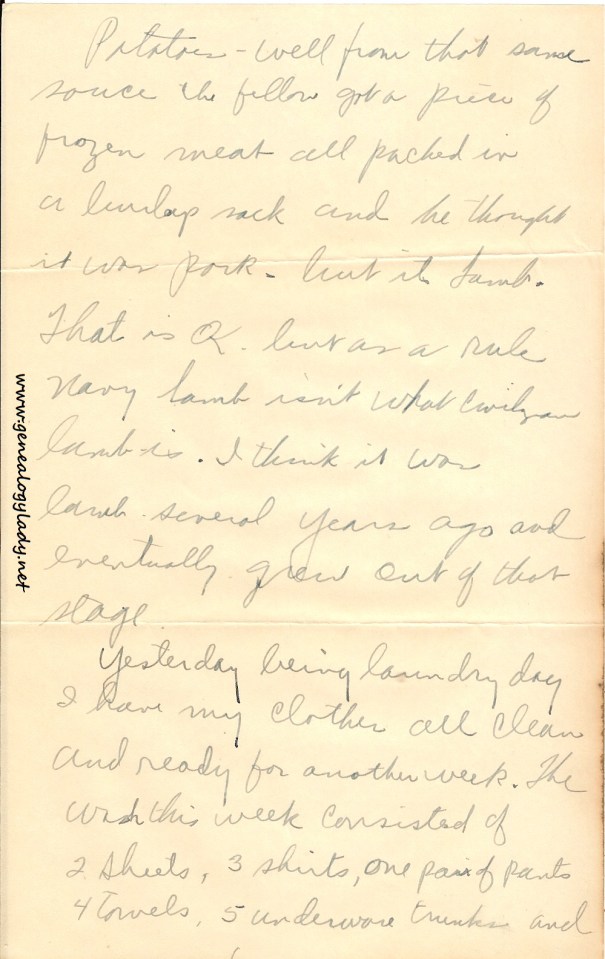 Potatoes - well from that same
souce the fellow got a piece of
frozen meat all packed in
a burlap sack and he thought
it was pork - but its Lamb.
That is OK. but as a rule
Navy lamb isn't what civilyan
lamb is. I think it was
lamb several years ago and
eventually grew out of that
stage.
Yesterday being laundry day
I have my clothes all clean
and ready for another week. The
wash this week consisted of
2 sheets, 3 shirts, one pair of pants
4 towels, 5 underware trunks and
www.genealogylady.net